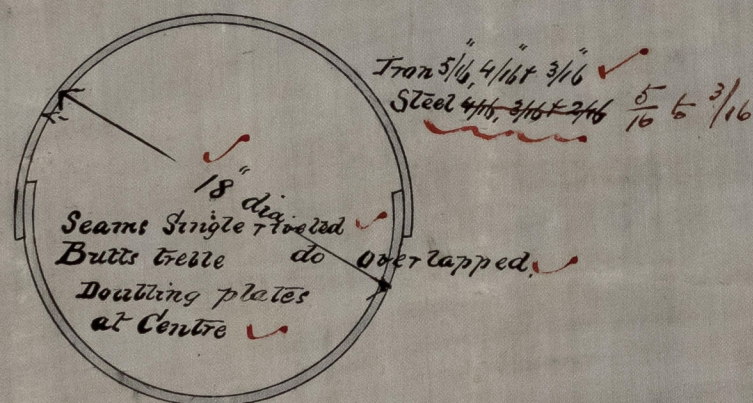 Iron 5/16", 4/16" & 3/16"
Steel 4/16, 3/16 & 2/16 5/16 to 3/16
18" dia
Seams Single riveted
Butts treble do overlapped.
Doubling plates
at Centre